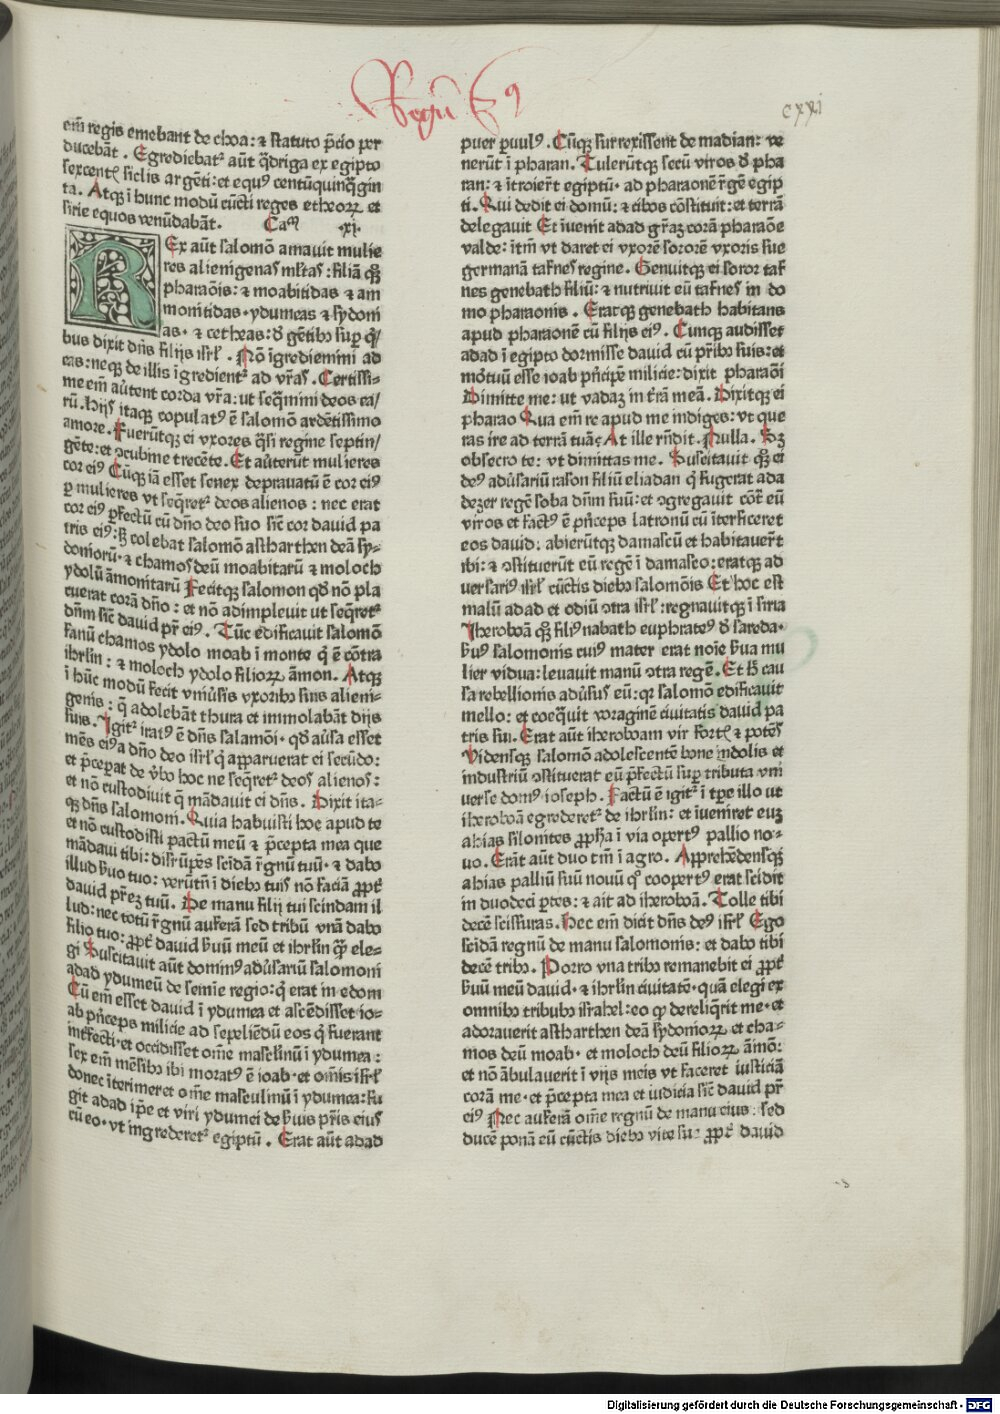 Regū 3⁹
cxxi
em̄ regis emebant de choa: ⁊ statuto p̄cio per
ducebāt . Egrediebat᷑ aūt q̄driga ex egipto
sexcent᷑ siclis argēti: et equꝰ centūquinq̄gin
ta. Atqꝫ ī hunc modū cūcti reges etheoꝝ et
sirie equos venūdabāt. Cam̄ .xi.
Rex aūt salomō amauit mulie
res alienigenas ml̄tas: filiā qꝫ
pharaōis: ⁊ moabitidas ⁊ am
monitidas · ydumeas ⁊ sydoni
as · ⁊ cetheas: d̄ gētibꝫ sup̱ q̄/
bus dixit dn̄s filijs isrł . Nō īgrediemini ad
eas: neqꝫ de illis īgredient᷑ ad vr̄as . Certissi-
me em̄ auertent corda vr̄a: ut seq̄mini deos ea/
rū. Hijs itaqꝫ copulatꝰ ē salomō ardētissimo
amore . Fuerūtqꝫ ei vxores q̄si regine septin/
gēte: et ꝯcubine trecēte. Et auterūt mulieres
cor eiꝰ Cūqꝫ iā esset senex deprauatū ē cor eiꝰ
ꝑ mulieres vt seq̄ret᷑ deos alienos : nec erat
cor eiꝰ ꝑfectū cū dn̄o deo suo sic̄ cor dauid pa
tris eiꝰ: sꝫ colebat salomō astharthen deā sy-
doniorū· ⁊ chamos deū moabitarū ⁊ moloch
ydolū āmonitarū Fecitqꝫ salomon qd̄ nō pla
cuerat corā dn̄o : et nō adimpleuit ut seq̄ret᷑
dn̄m sic̄ dauid pr̄ eiꝰ . Tūc edificauit salomō
fanū chamos ydolo moab ī monte q̄ ē cōtra
ihrłm : ⁊ moloch ydolo filioꝝ āmon. Atqꝫ
ī hūc modū fecit vniūsis vxoribꝫ suis alieni-
genis : q̄ adolebāt thura et immolabāt dijs
suis. Igit᷑ iratꝰ ē dn̄s salamōi · qd̄ aūsa esset
mēs eiꝰ a dn̄o deo isrł q̄ apparuerat ei secūdo:
et p̄ceperat de v̄bo hoc ne seq̄ret᷑ deos alienos :
et nō custodiuit q̄ mādauit ei dn̄s. Dixit ita-
qꝫ dn̄s salomoni. Quia habuisti hoc apud te
et nō custodisti pactū meū ⁊ p̄cepta mea que
mādaui tibi: disrūpēs scidā r̄gnū tuū · ⁊ dabo
illud s̄uo tuo: verūtn̄ ī diebꝫ tuis nō faciā ꝓpt᷑
dauid pr̄eꝫ tuū. De manu filij tui scindam il
lud: nec totū r̄gnū auferā sed tribū vnā dabo
filio tuo: ꝓpt᷑ dauid s̄uū meū et ihrłm q̄ ele-
gi Suscitauit aūt dominꝰ adūsariū salomoni
adad ydumeū de semīe regio: q̄ erat in edom
Cū em̄ esset dauid ī ydumea et ascēdisset io-
ab p̄nceps milicie ad sepeliēdū eos q̄ fuerant
intfecti· et occidisset om̄e masclinū ī ydumea :
sex em̄ mēsibꝫ ibi moratꝰ ē ioab · et om̄is isrł
donec īterimeret om̄e masculinū ī ydumea: fu
git adad ip̄e et viri ydumei de s̄uis pr̄is eius
cū eo · vt ingrederet᷑ egiptū . Erat aūt adad
puer ꝑuulꝰ. Cūqꝫ surrexissent de madian: ve
nerūt ī pharan. Tulerūtqꝫ secū viros d̄ pha
ran: ⁊ ītroier̄t egiptū· ad pharaonē r̄gē egip
ti. Qui dedit ei domū: ⁊ cibos cōstituit: et terrā
delegauit Et īuenit adad gr̄aꝫ corā pharaōe
valde: itm̄ vt daret ei vxorē sororē vxoris sue
germanā tafnes regine. Genuitqꝫ ei soror taf
nes genebath filiū: ⁊ nutriuit eū tafnes in do
mo pharaonis . Eratqꝫ genebath habitans
apud pharaonē cū filijs eiꝰ. Cunqꝫ audisset
adad ī egipto dormisse dauid cū pr̄ibꝫ suis: et
mōtuū esse ioab p̄ncipē milicie: dixit pharaōi
Dimitte me: ut vadaꝫ in t̄rā meā. Dixitqꝫ ei
pharao Qua em̄ re apud me indiges: vt que
ras ire ad terrā tuā: At ille rn̄dit. Nulla. Sꝫ
obsecro te: vt dimittas me. Suscitauit qꝫ ei
deꝰ adūsariū rason filiū eliadan q̄ fugerat ada
dezer regē soba dn̄m suū: et ꝯgregauit cōt᷑ eū
viros et factꝰ ē p̄nceps latronū cū īterficeret
eos dauid: abierūtqꝫ damascū et habitauer̄t
ibi: ⁊ ꝯstituerūt eū regē ī damasco: eratqꝫ ad
uersariꝰ isrł cūctis diebꝫ salomōis Et hoc est
malū adad et odiū ꝯtra isrł: regnauitqꝫ ī siria
Iheroboā qꝫ filiꝰ nabath euphrateꝰ d̄ sareda·
s̄uꝰ salomonis cuiꝰ mater erat noīe s̄ua mu
lier vidua: leuauit manū ꝯtra regē. Et h̄ cau
sa rebellionis adūsus eū: qꝛ salomō edificauit
mello: et coeq̄uit voraginē ciuitatis dauid pa
tris sui. Erat aūt iheroboam vir fort᷑ ⁊ potēs
Vidensqꝫ salomō adolescentē bone indolis et
industriū ꝯstituerat eū p̄fectū sup̱ tributa vni
uerse domꝰ ioseph. Factū ē igit᷑ ī tꝑe illo ut
iheroboā egrederet᷑ de ihrłm: et īueniret euꝫ
ahias silonites ꝓpha ī via opertꝰ pallio no-
uo. Erāt aūt duo tm̄ ī agro. Apprehēdensqꝫ
ahias palliū suū nouū qͦ coopertꝰ erat scidit
in duodecī ꝑtes: ⁊ ait ad iheroboā. Tolle tibi
decē scissuras. Hec em̄ dicit dn̄s deꝰ isrł Ego
scidā regnū de manu salomonis: et dabo tibi
decē tribꝫ. Porro vna tribꝫ remanebit ei ꝓpt᷑
s̄uū meū dauid · ⁊ ihrłm ciuitatē · quā elegi ex
omnibꝫ tribubꝫ israhel: eo ꝙ dereliq̄rit me · et
adorauerit astharthen deā sydonioꝝ et cha-
mos deū moab · et moloch deū filioꝝ āmō:
et nō ābulauerit ī vijs meis vt faceret iusticiā
corā me · et p̄cepta mea et iudicia sic̄ dauid pr̄
eiꝰ Nec auferā om̄e regnū de manu eius: sed
ducē ponā eū cūctis diebꝫ vite sue ꝓpt᷑ dauid
Digitalisierung gefördert durch die Deutsche Forschungsgemeinschaft - DFG